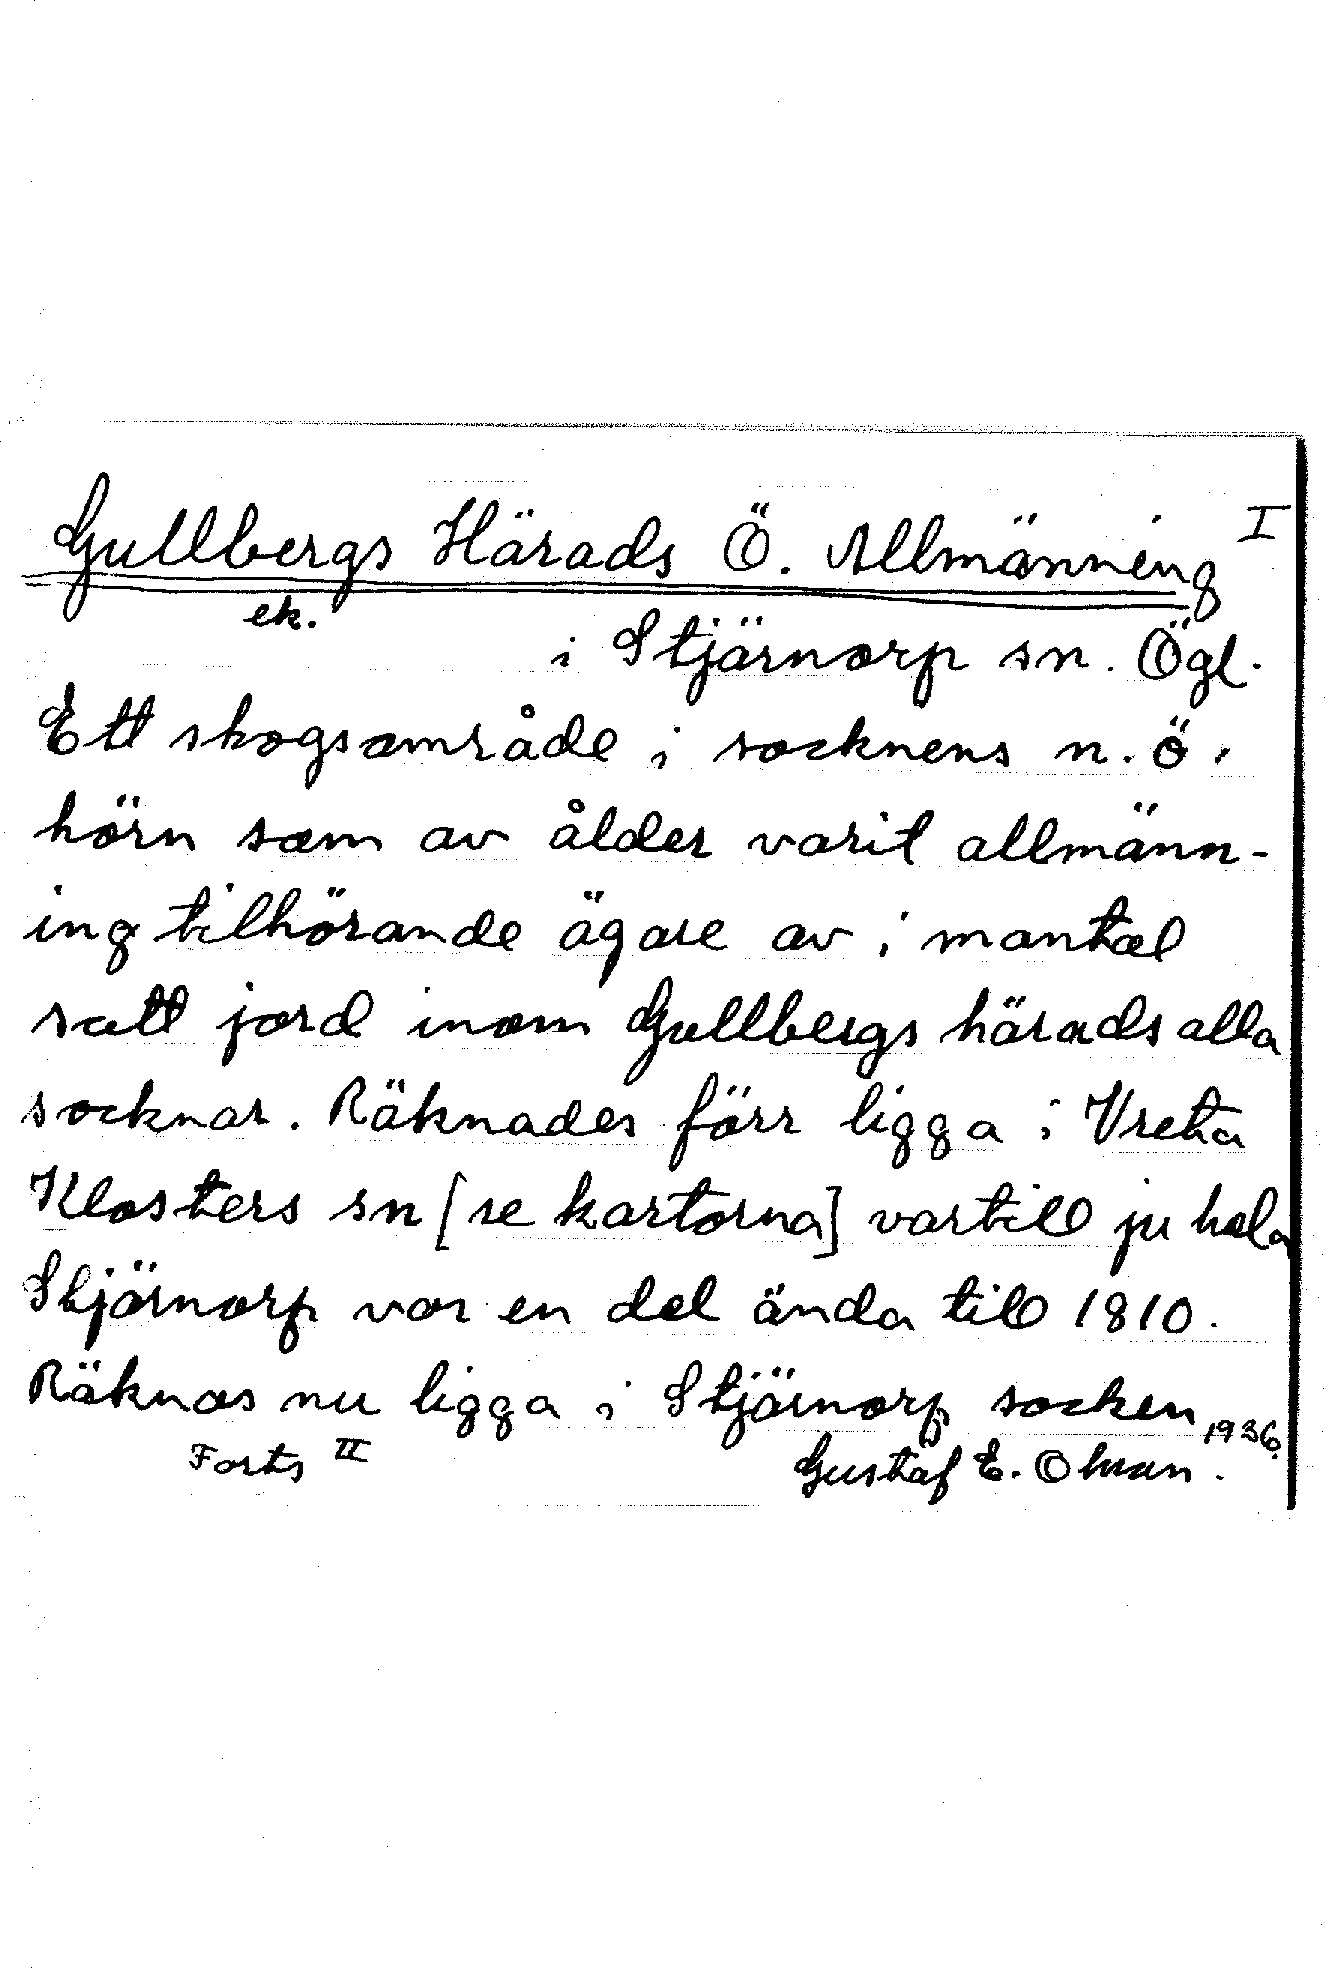 Gullbergs Härads Ö. Allmänning I
ek.
i Stjärnorp sn. Ögl.
Ett skogsområde i socknens n.ö.
hörn som av ålder varit allmänn-
ing tilhörande ägare av i mantal
satt jord inom Gullbergs härads alla
socknar. Räknades förr ligga i Vreta
Klosters sn [se kartorna] vartill ju hela
Stjärnorp var en del ända till 1810.
Räknas nu ligga i Stjärnorp socken
1936.
Forts II Gustaf E. Ohman.